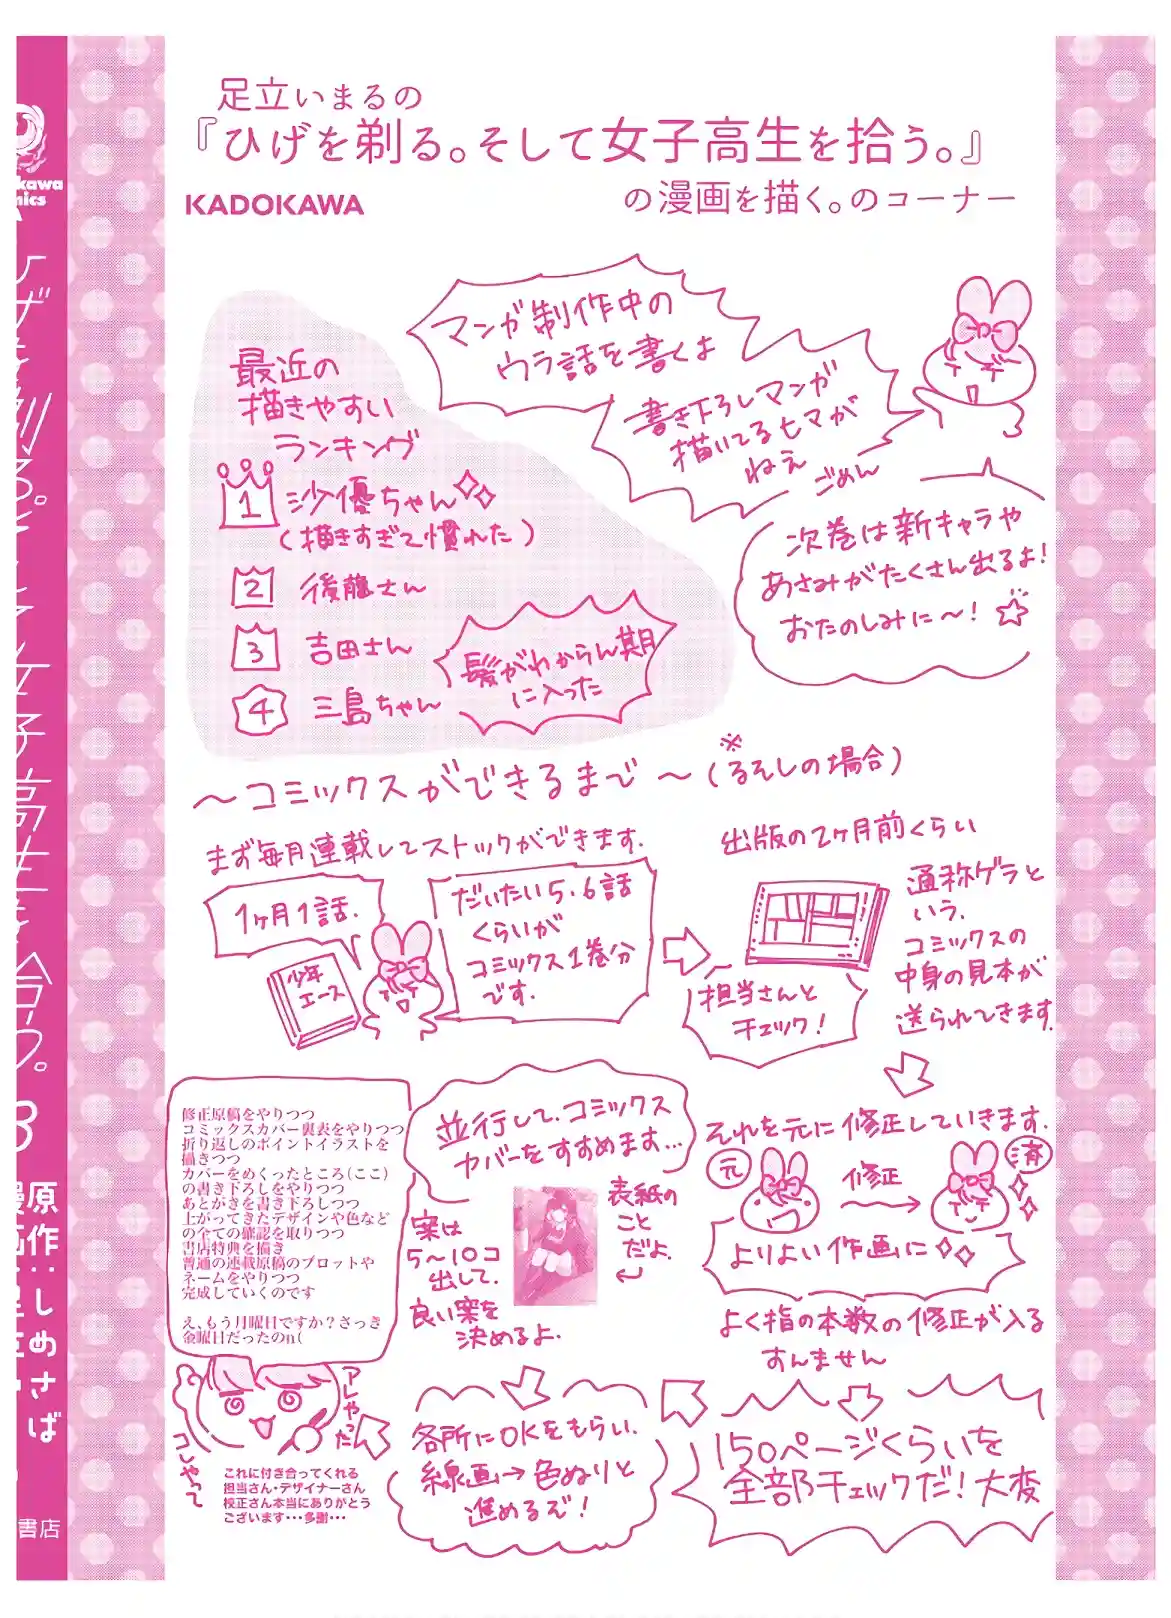 足立いまるの
『ひげを剃る。そして女子高生を拾う。』
KADOKAWA
の漫画を描く。のコーナー
マンガ制作中の
ウラ話を書くよ
書き下ろしマンガ
描いてるヒマが
ねえ
ごめん
次巻は新キャラや
あさみがたくさん出るよ!
おたのしみに〜!☆
最近の
描きやすい
ランキング
1 沙優ちゃん
(描きすぎて慣れた)
2 後藤さん
3 吉田さん
4 三島ちゃん
髪がわからん期
に入った
〜コミックスができるまで〜(※ひそしの場合)
まず毎月連載してストックができます.
1ヶ月1話.
少年
エース
だいたい5.6話
くらいが
コミックス1巻分
です.
出版の2ヶ月前くらい
通称ゲラと
いう.
コミックスの
中身の見本が
送られてきます.
担当さんと
チェック!
それを元に修正していきます.
元
修正
済
よりよい作画に
よく指の本数の修正が入る
すんません
150ページくらいを
全部チェックだ!大変
並行して.コミックス
カバーをすすめます...
表紙の
こと
だよ.
案は
5〜10コ
出して.
良い案を
決めるよ.
各所にOKをもらい.
線画→色ぬりと
進めるぞ!
修正原稿をやりつつ
コミックスカバー裏表をやりつつ
折り返しのポイントイラストを
描きつつ
カバーをめくったところ(ここ)
の書き下ろしをやりつつ
あとがきを書き下ろしつつ
上がってきたデザインや色など
の全ての確認を取りつつ
書店特典を描き
普通の連載原稿のプロットや
ネームをやりつつ
完成していくのです
え、もう月曜日ですか?さっき
金曜日だったのn(
アレやった
コレやって
これに付き合ってくれる
担当さん・デザイナーさん
校正さん本当にありがとう
ございます・・・多謝・・・
3
原作:しめさば
書店